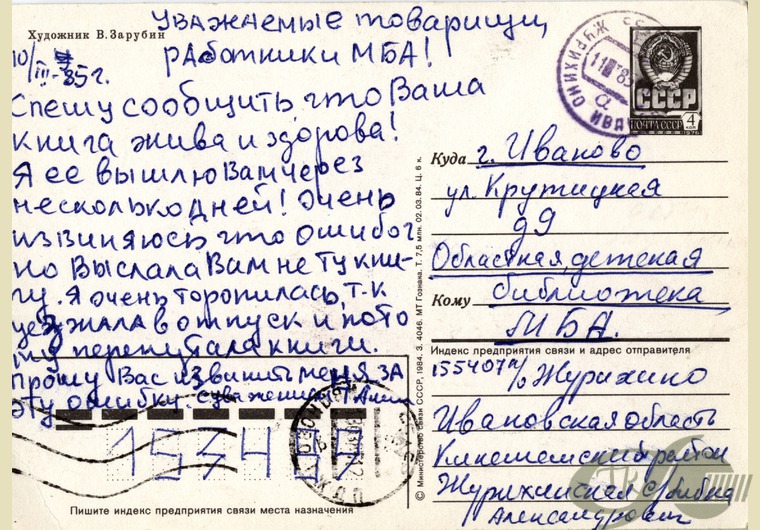 Художник В. Зарубин
Уважаемые товарищи,
работники МБА!
10/III-85г.
Спешу сообщить что Ваша
книга жива и здорова!
Я ее вышлю Вам через
несколько дней! Очень
извиняюсь что ошибоч
но выслала Вам не ту кни-
гу. Я очень торопилась, т.к
уезжала в отпуск и пото
му перепутала книги.
Прошу Вас извинить меня за
эту ошибку. С уважением
153497
Пишите индекс предприятия связи места назначения
© Министерство связи СССР, 1984. З. 4046. МТ Гознака. Т. 7,5 млн. 02.03.84. Ц. 6 к.
СССР
ПОЧТА СССР
4
коп
1976
Куда г. Иваново
ул. Крутицкая
д 9
Областная детская
Кому библиотека
МБА.
Индекс предприятия связи и адрес отправителя
155407 п/о Журихино
Ивановская область
Кинешемский район
Журихинская с/библ
Александрович